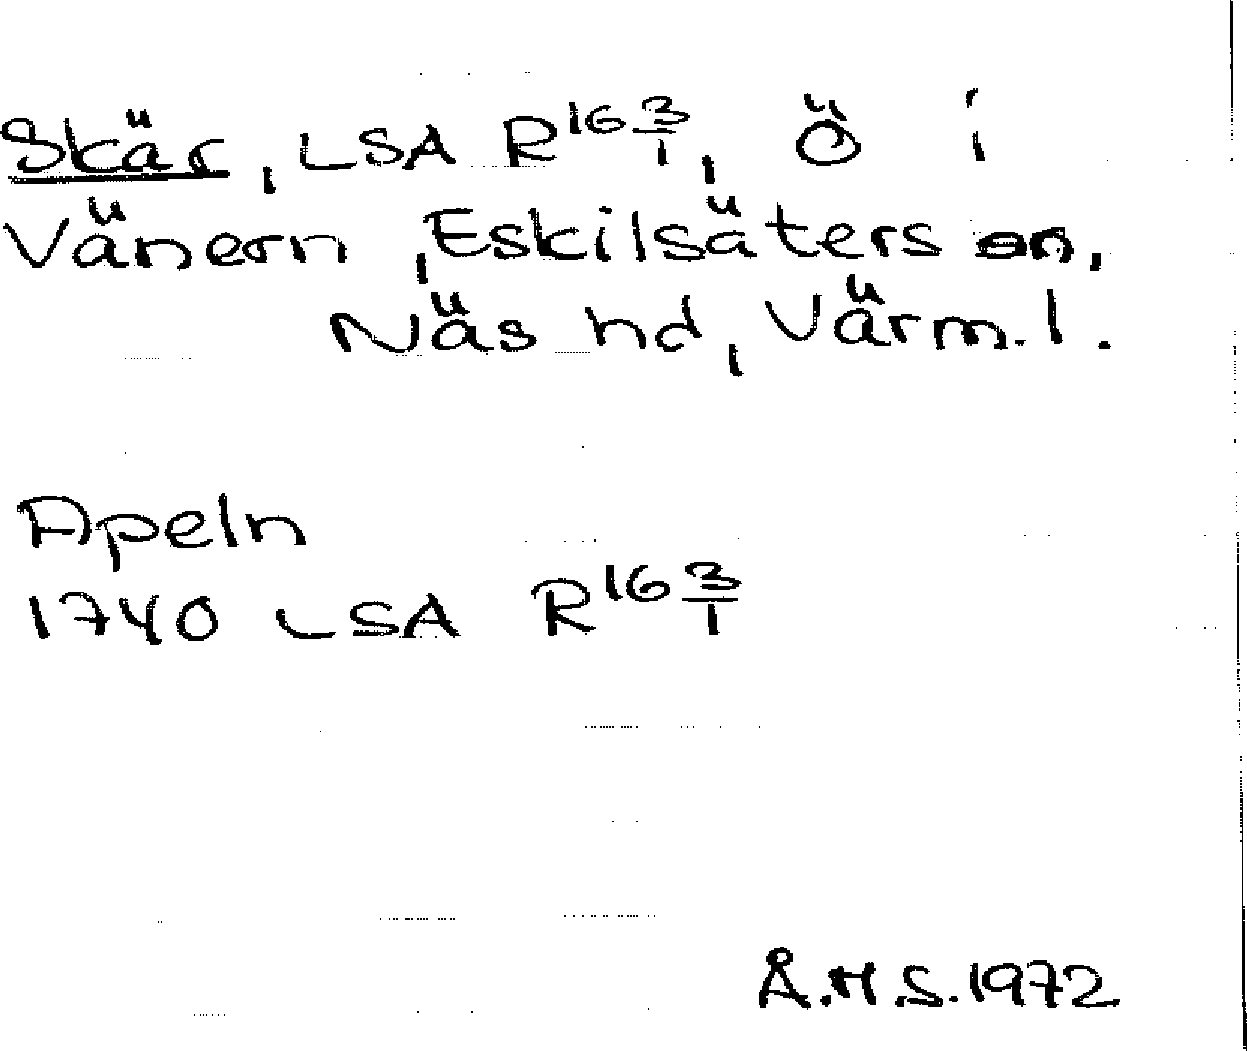 Skär, LSA R16 3/1, ö i
Vänern, Eskilsäters sn,
Näs hd, Värml.
Apeln
1740 LSA R16 3/1
Å.H.S. 1972